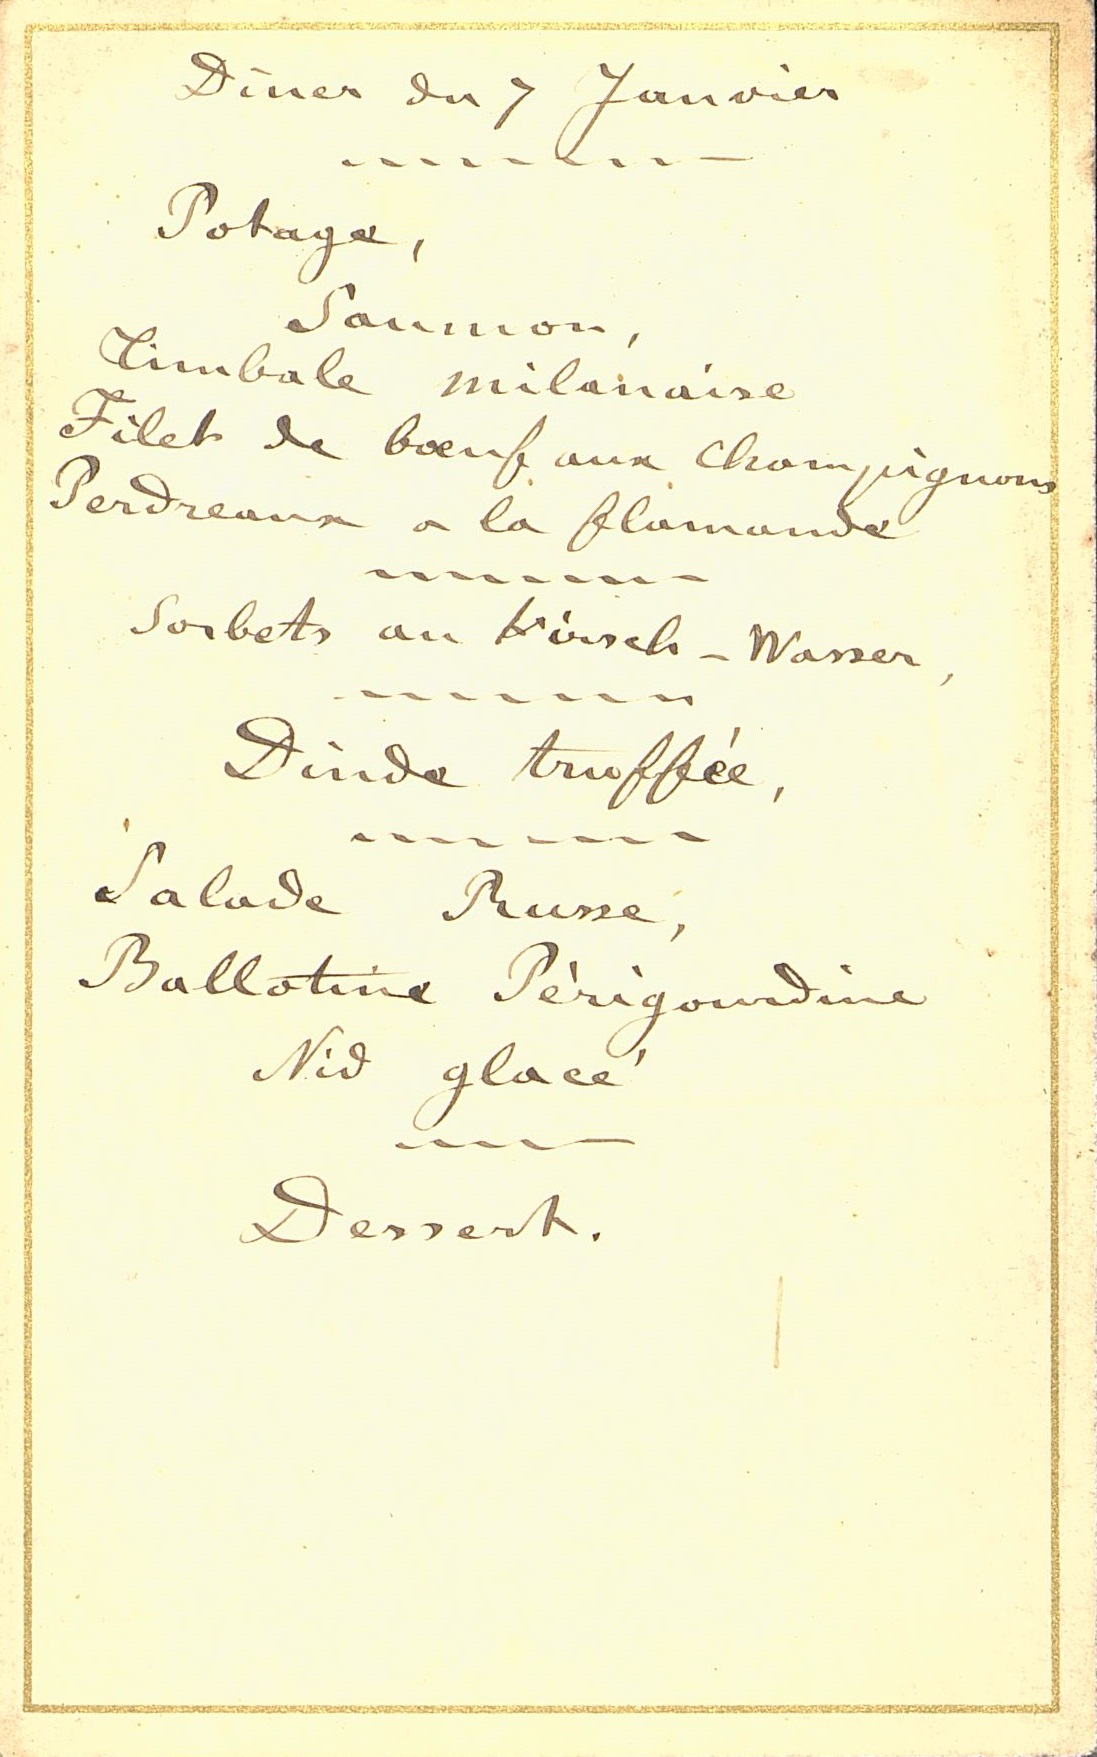 Dîner du 7 Janvier
Potage,
Saumon,
Timbale milanaise
Filet de bœuf aux Champignons
Perdreaux a la flamande
Sorbets au Kirsch - Wasser,
Dinde truffée,
Salade Russe,
Ballotine Périgourdine
Nid glacé
Dessert.